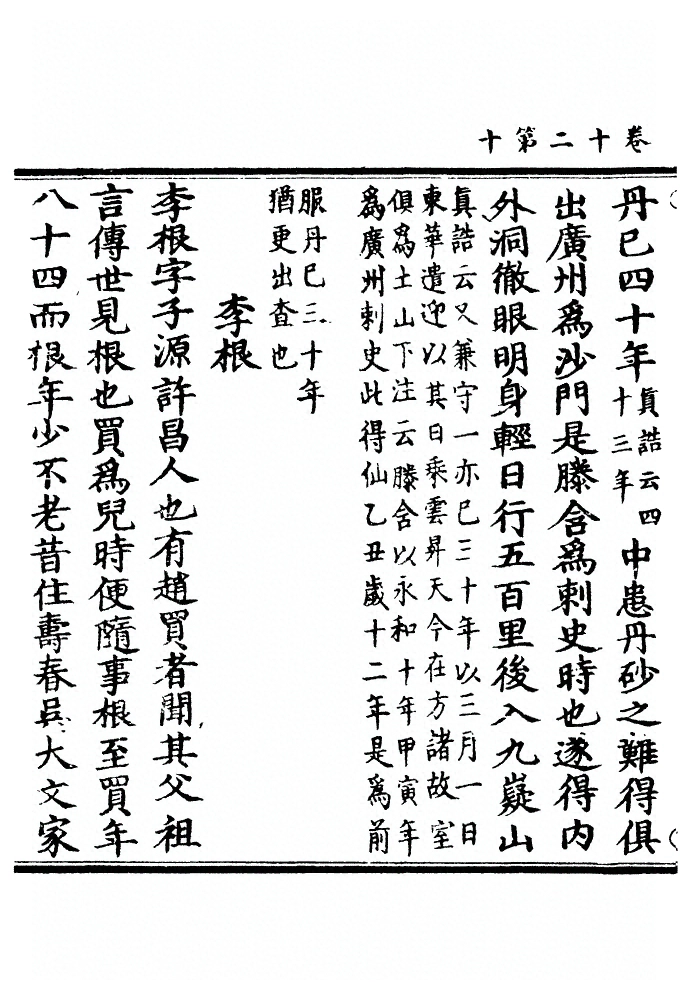 卷十二第十
丹巳四十年真誥云四十三年中患丹砂之難得俱
出廣州爲沙門是滕含爲刺史時也遂得内
外洞徹眼明身輕日行五百里後入九嶷山
真誥云又兼守一亦巳三十年以三月一日
東華遣迎以其日乘雲昇天今在方諸故室
俱爲土山下注云滕含以永和十年甲寅年
爲廣州刺史此得仙乙丑歲十二年是爲前
服丹巳三十年
猶更出查也
李根
李根字子源許昌人也有趙買者聞其父祖
言傳世見根也買爲兒時便隨事根至買年
八十四而根年少不老昔住壽春吳大文家